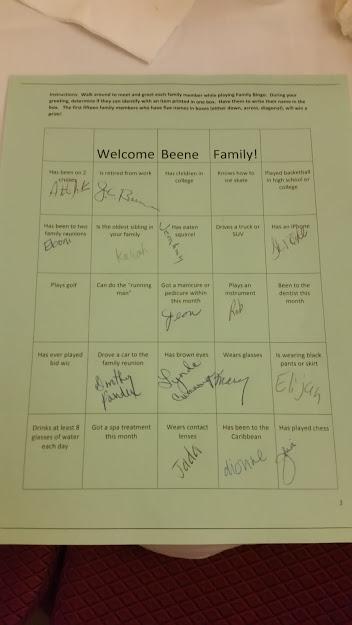 Instructions: Walk around to meet and greet each family member while playing Family Bingo. During your
greeting, determine if they can identify with an item printed in one box. Have them to write their name in the
box. The first fifteen family members who have five names in boxes (either down, across, diagonal), will win a
prize!
Welcome Beene Family!
Has been on 2
cruises
Is retired from work
Has children in
college
Knows how to
ice skate
Played basketball
in high school or
college
Has been to two
family reunions
Eboni
Is the oldest sibling in
your family
Has eaten
squirrel
Drives a truck or
SUV
Has an iPhone
Plays golf
Can do the "running
man"
Got a manicure or
pedicure within
this month
Jeon
Plays an
instrument
Rob
Been to the
dentist this
month
Has ever played
bid wiz
Drove a car to the
family reunion
Dorothy
Has brown eyes
Lynda
Wears glasses
Mary
Is wearing black
pants or skirt
Elijah
Drinks at least 8
glasses of water
each day
Got a spa treatment
this month
Wears contact
lenses
Jada
Has been to the
Caribbean
dionne
Has played chess
3